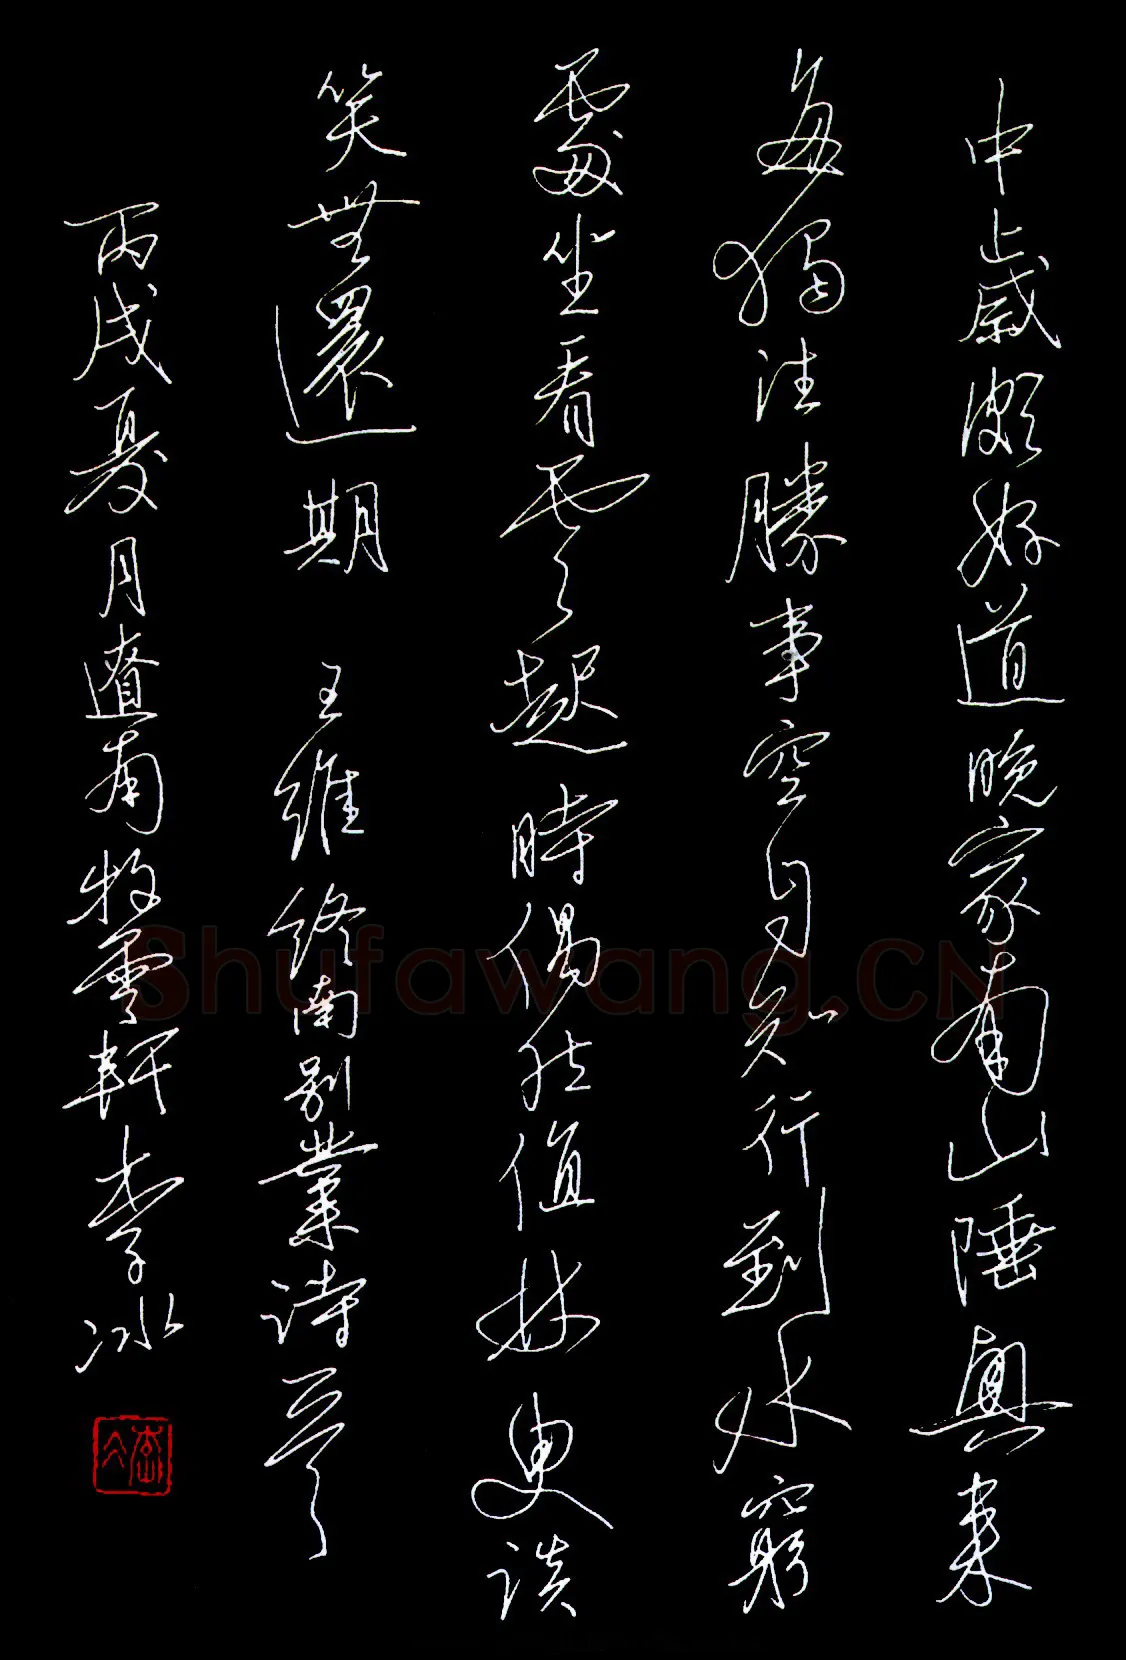 中歲頗好道晚家南山陲興來
每獨往勝事空自知行到水窮
處坐看雲起時偶然值林叟談
笑無還期 王維終南別業詩
丙戌夏月遼南牧雲軒李冰
Shufawang.CN